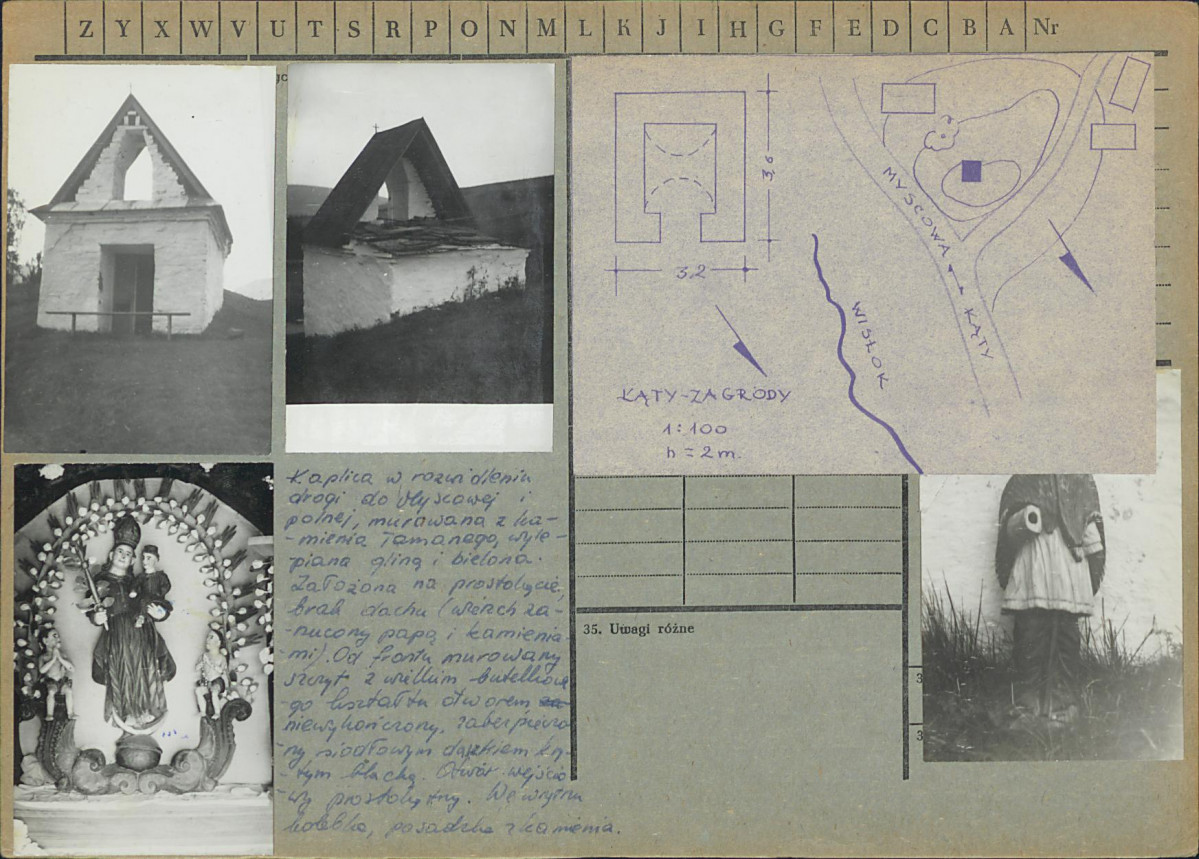 Z Y X W V U T S R P O N M L K J I H G F E D C B A Nr
3,6
3,2
MYSCOWA
KĄTY
WISŁOK
KĄTY-ZAGRODY
1:100
h = 2 m.
Kaplica w rozwidleniu
drogi do Myscowej i
polnej, murowana z ka-
-mienia łamanego, wyle-
-piana gliną i bielona.
Założona na prostokącie,
brak dachu (wierzch za-
-rzucony papą i kamienia-
-mi). Od frontu murowany
szczyt z wielkim butelkowe-
-go kształtu otworem
niewykończony, zabezpieczo-
-ny siodłowym daszkiem kry-
-tym blachą. Otwór wejścio-
-wy prostokątny. We wnętrzu
kolebka, posadzka z kamienia.
35. Uwagi różne
3
3